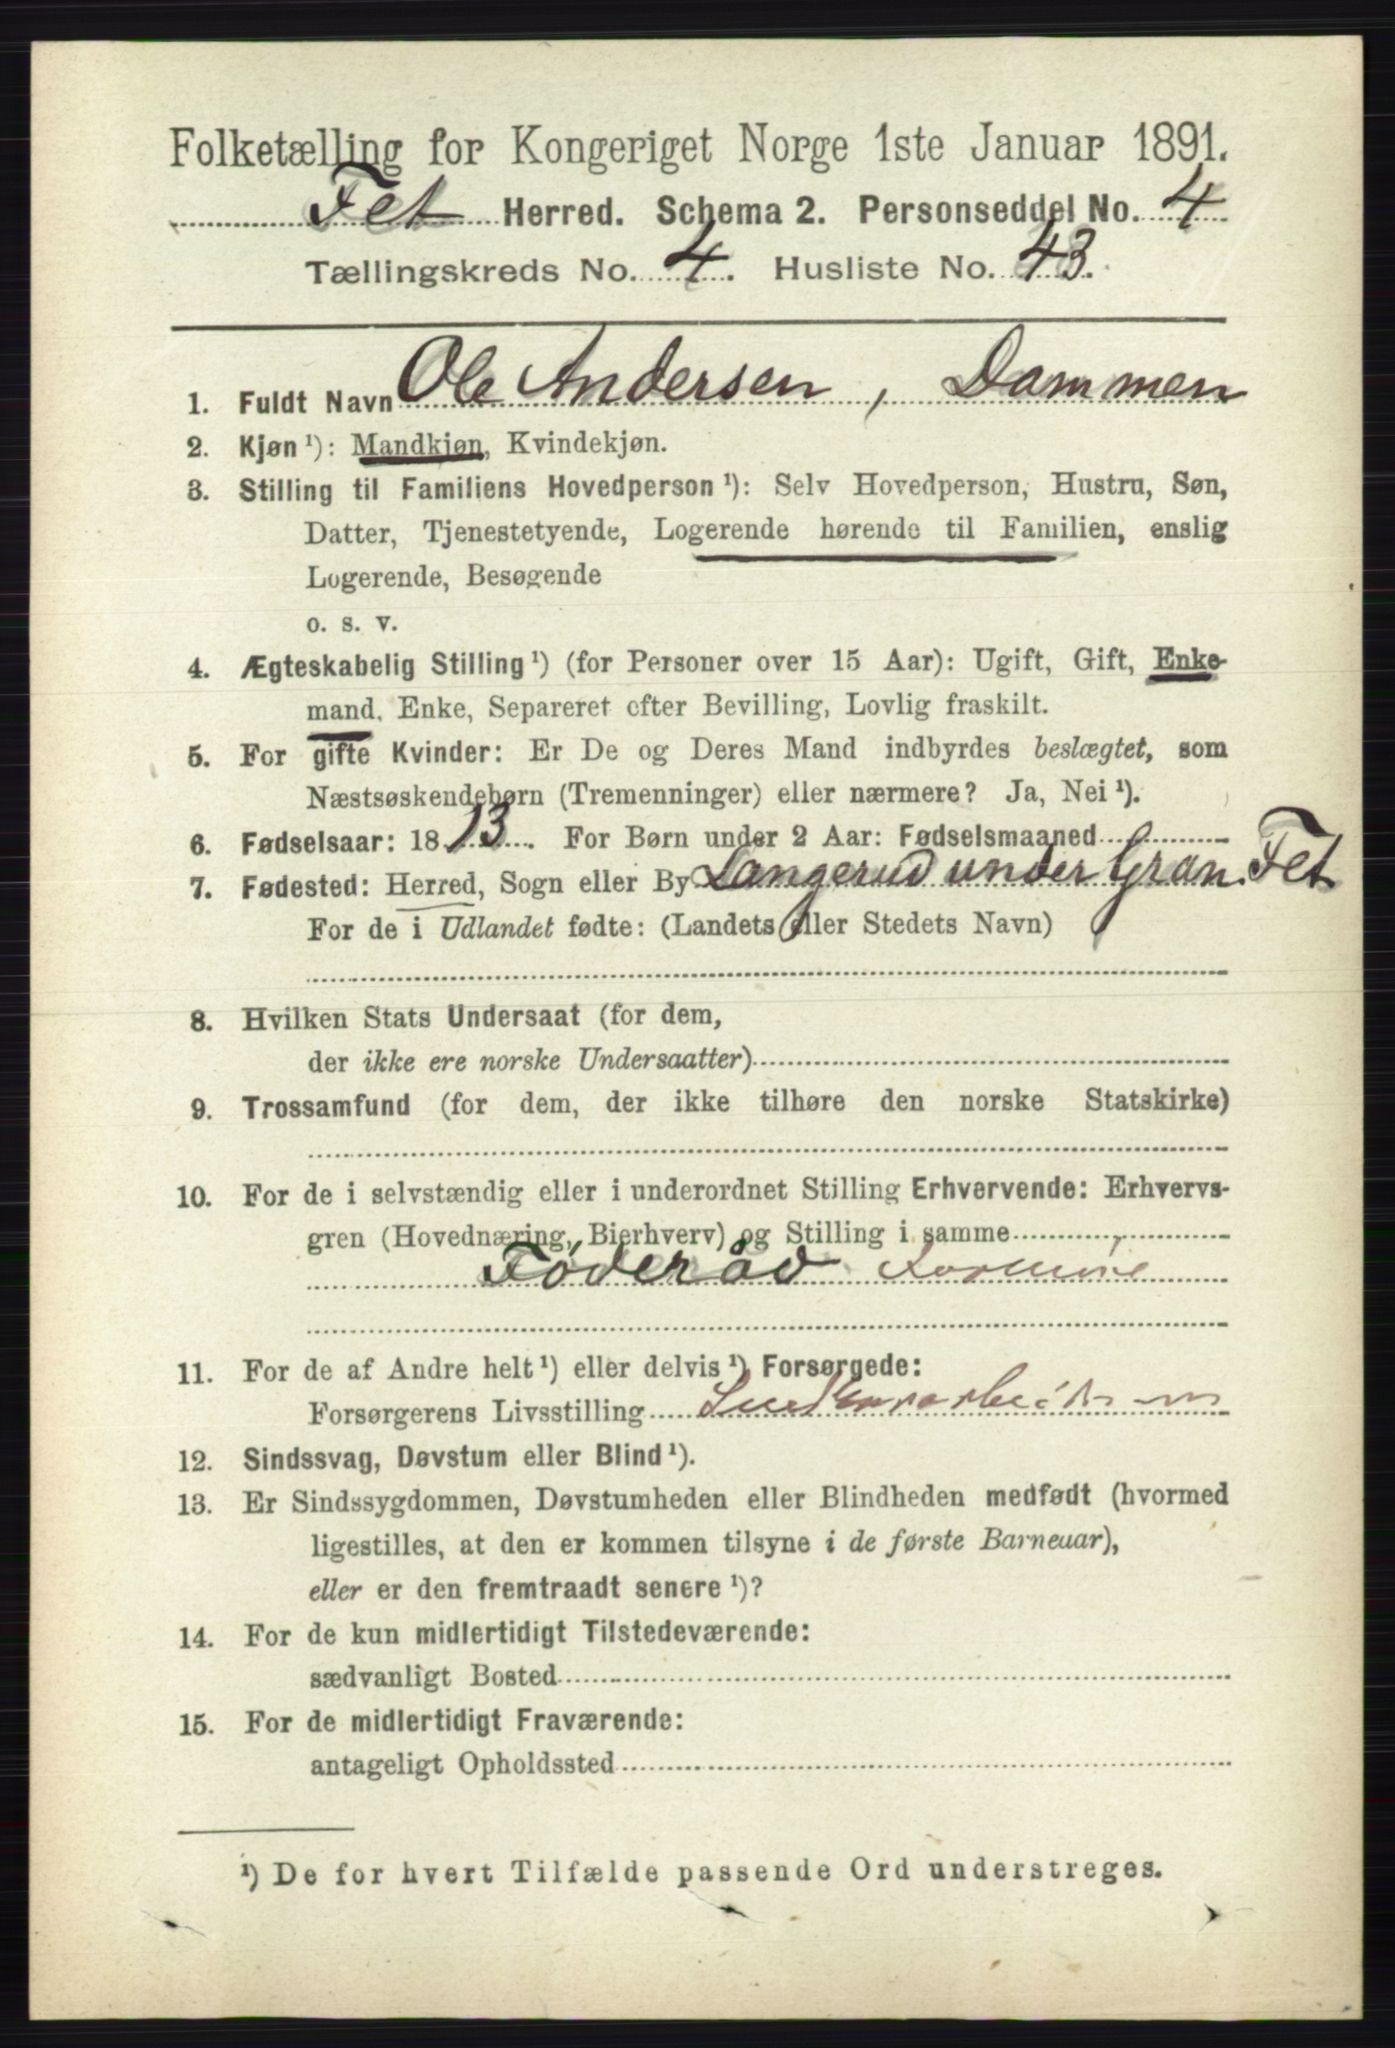 Folketælling for Kongeriget Norge 1ste Januar 1891.
Fet Herred. Schema 2. Personseddel No. 4
Tællingskreds No. 4. Husliste No. 43.
1. Fuldt Navn Ole Andersen, Dammen
2. Kjøn ¹): Mandkjøn, Kvindekjøn.
3. Stilling til Familiens Hovedperson ¹): Selv Hovedperson, Hustru, Søn,
Datter, Tjenestetyende, Logerende hørende til Familien, enslig
Logerende, Besøgende
o. s. v.
4. Ægteskabelig Stilling ¹) (for Personer over 15 Aar): Ugift, Gift, Enke-
mand, Enke, Separeret efter Bevilling, Lovlig fraskilt.
5. For gifte Kvinder: Er De og Deres Mand indbyrdes beslægtet, som
Næstsøskendebørn (Tremenninger) eller nærmere? Ja, Nei ¹).
6. Fødselsaar: 1813. For Børn under 2 Aar: Fødselsmaaned
7. Fødested: Herred, Sogn eller By Langerud under Gran. Fet
For de i Udlandet fødte: (Landets eller Stedets Navn)
8. Hvilken Stats Undersaat (for dem,
der ikke ere norske Undersaatter)
9. Trossamfund (for dem, der ikke tilhøre den norske Statskirke)
10. For de i selvstændig eller i underordnet Stilling Erhvervende: Erhvervs-
gren (Hovednæring, Bierhverv) og Stilling i samme
Føderåd
11. For de af Andre helt ¹) eller delvis ¹) Forsørgede:
Forsørgerens Livsstilling
12. Sindssvag, Døvstum eller Blind ¹).
13. Er Sindssygdommen, Døvstumheden eller Blindheden medfødt (hvormed
ligestilles, at den er kommen tilsyne i de første Barneaar),
eller er den fremtraadt senere ¹)?
14. For de kun midlertidigt Tilstedeværende:
sædvanligt Bosted
15. For de midlertidigt Fraværende:
antageligt Opholdssted
¹) De for hvert Tilfælde passende Ord understreges.